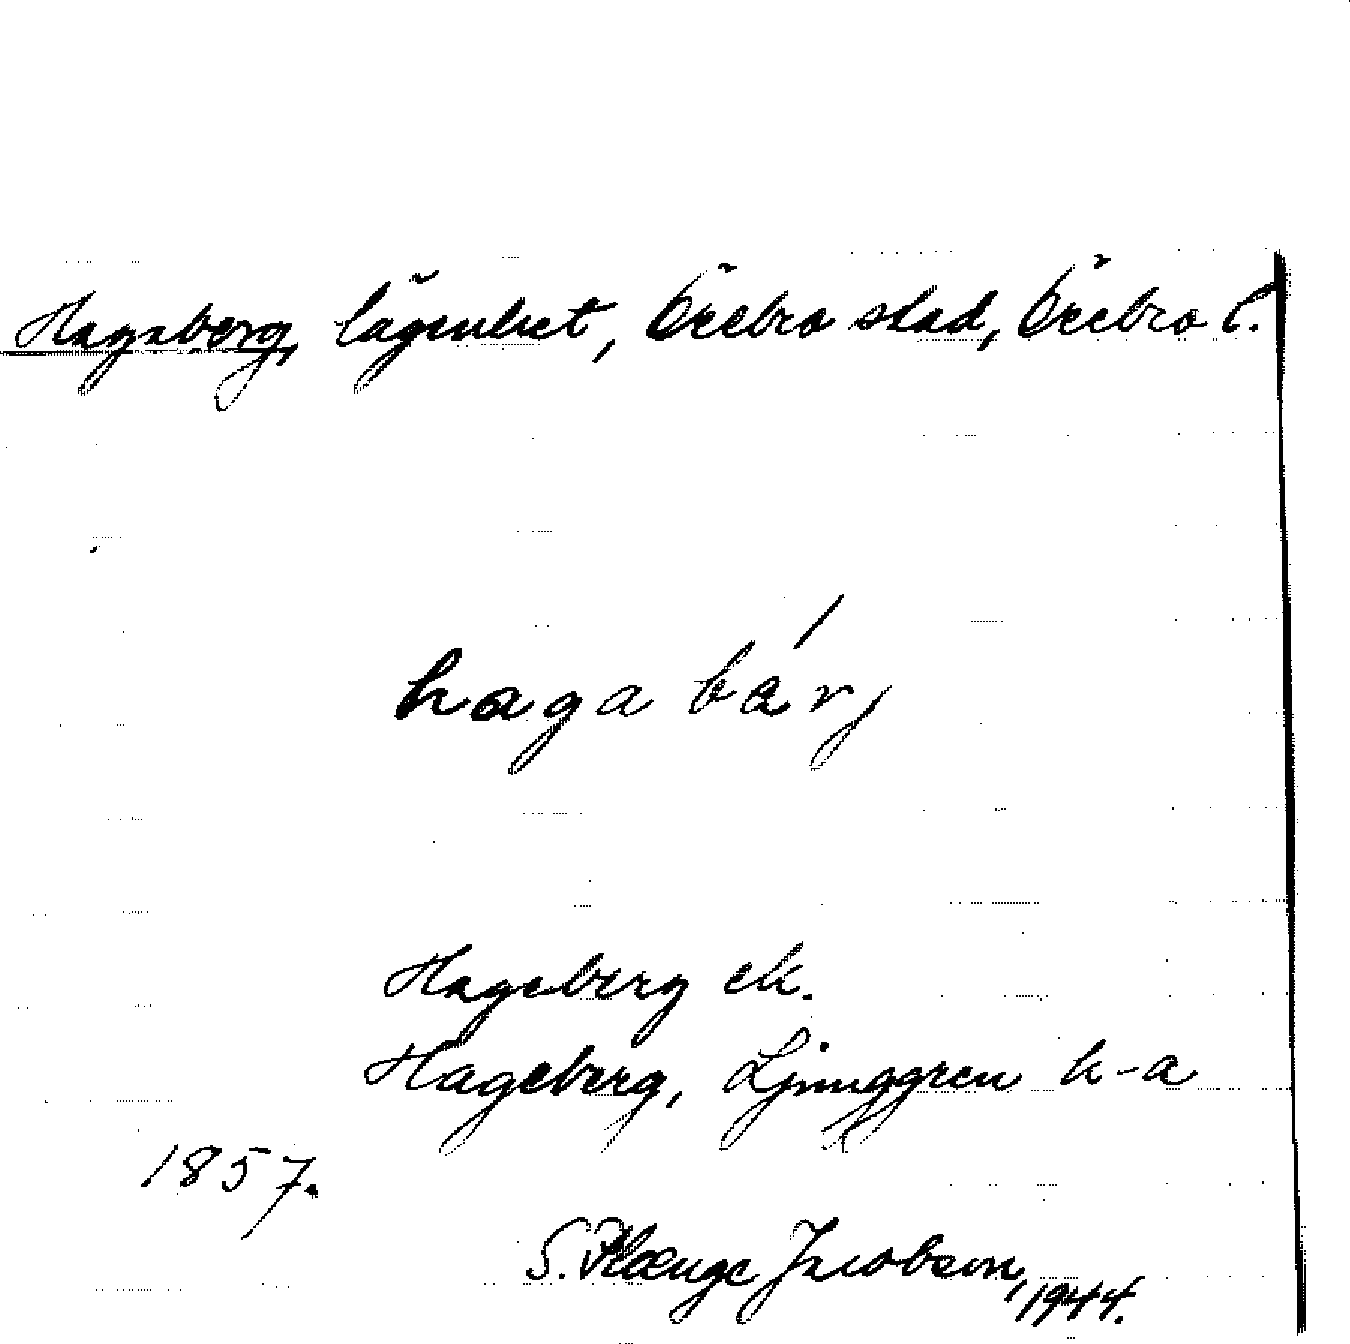 Hagaberg, lägenhet, Örebro stad, Örebro l.
haga bärj
Hageberg ek.
Hageberg, Ljunggren h-a
1857.
S. Plænge Jacobson, 1944.